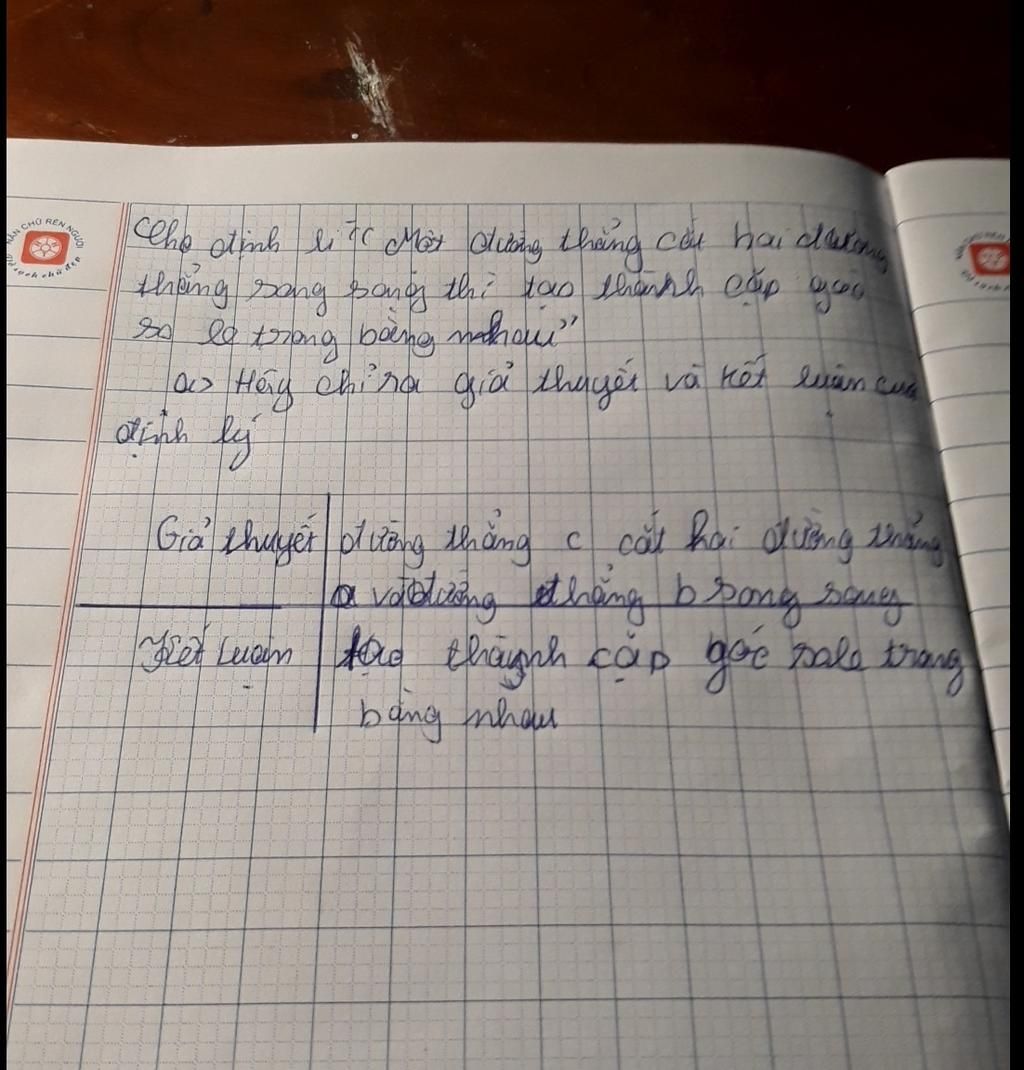 Cho định lí "Một đường thẳng cắt hai đường
thẳng song song thì tạo thành cặp góc
so le trong bằng nhau"
a> Hãy chỉ ra giả thuyết và kết luận của
định lý
Giả thuyết đường thẳng c cắt hai đường thẳng
a và đường thẳng b song song
Kết Luận tạo thành cặp góc sole trong
bằng nhau
NẮN CHỮ RÈN NGƯỜI